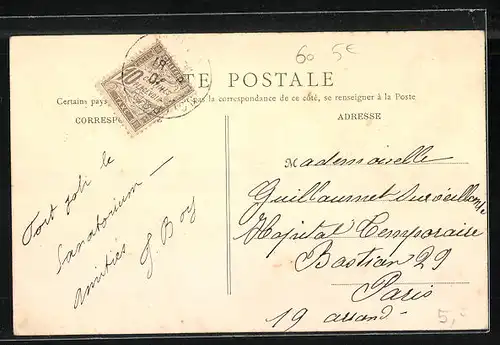 60 5€
CARTE POSTALE
Certains pays pas la correspondance de ce côté, se renseigner à la Poste
CORRESP
ADRESSE
10
Fort joli le
Sanatorium —
amitiés
J. Boy
Mademoiselle
Guillaumet Surveillante
Hopital Temporaire
Bastion 29
Paris
19 arrond.
5,-